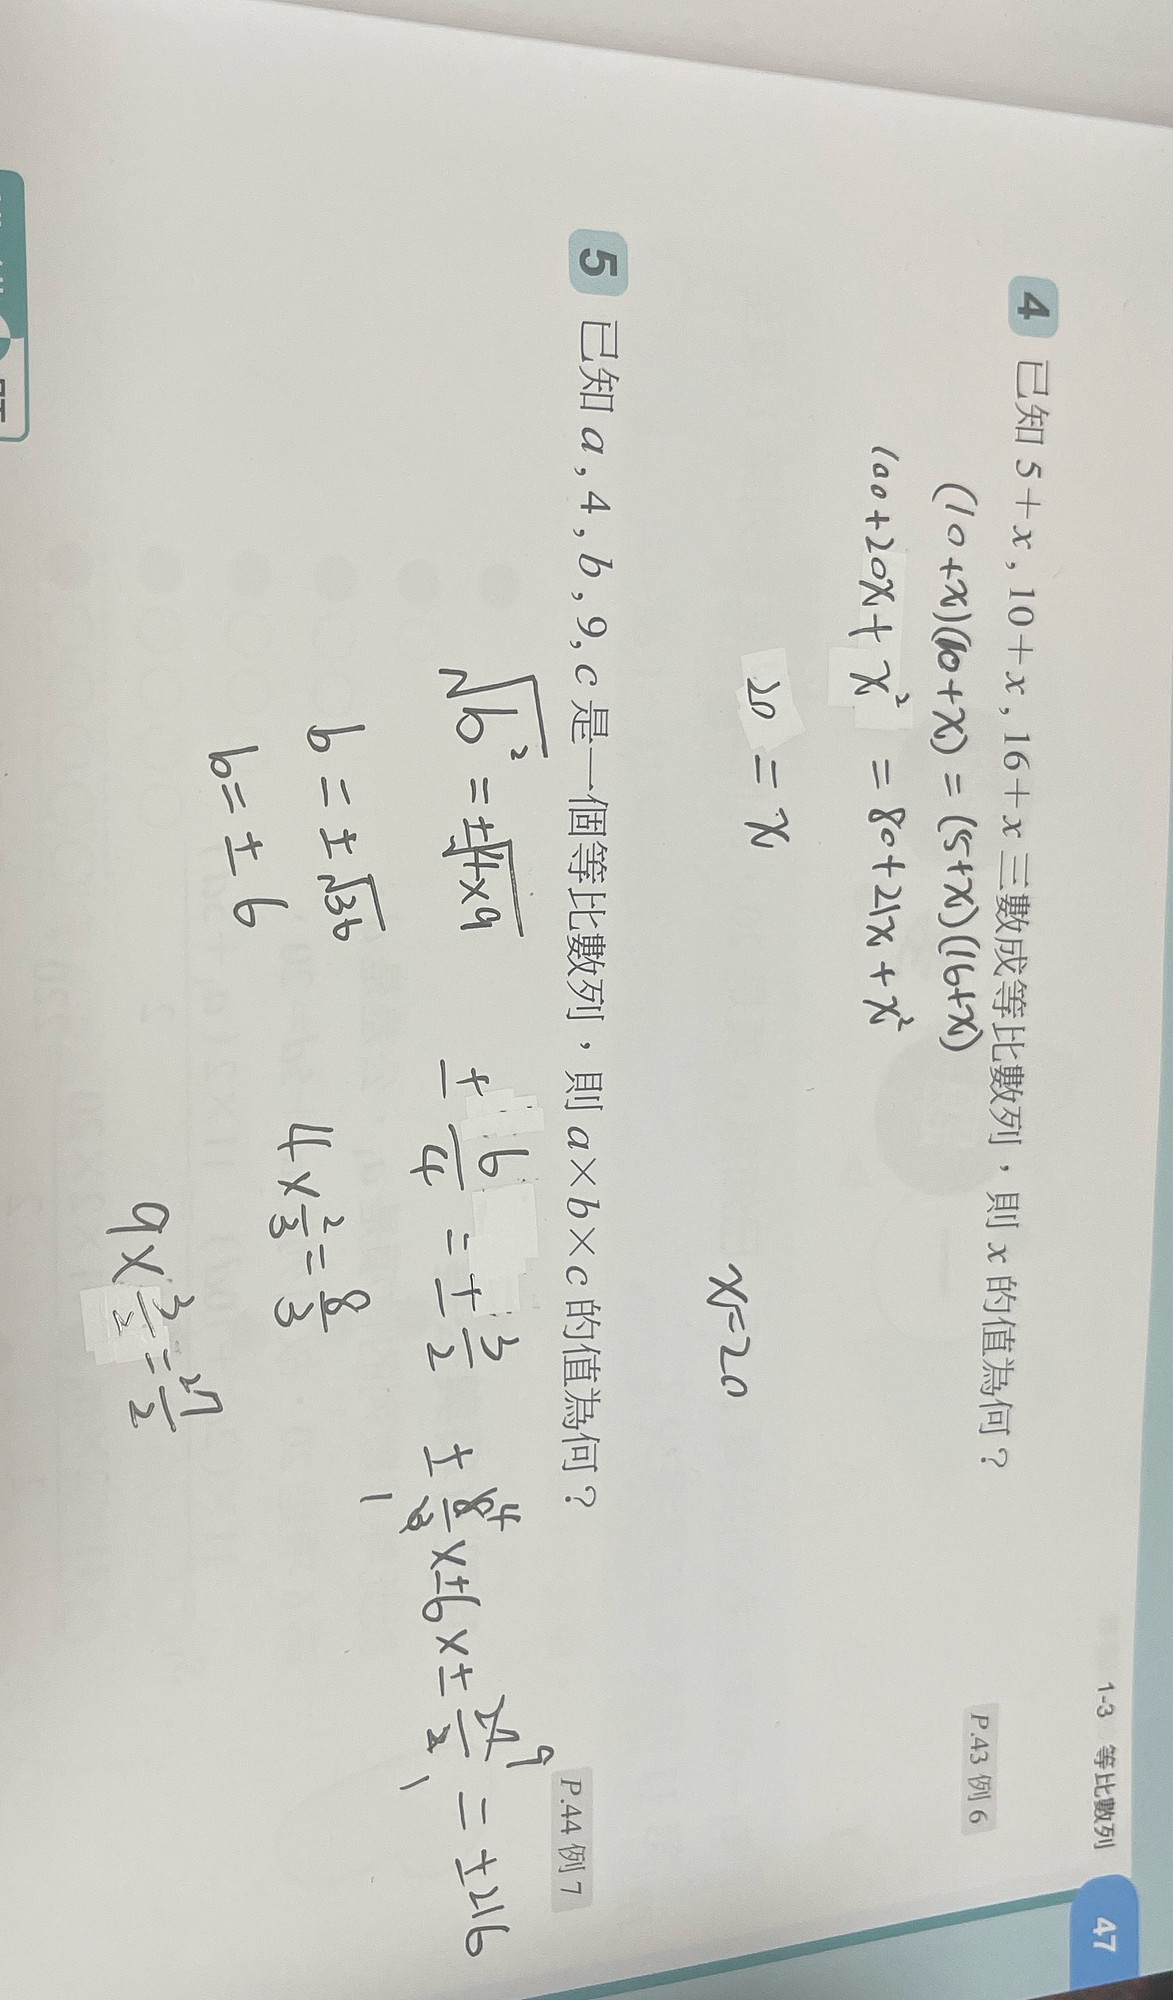 1-3 等比數列 47
4 已知 5+x, 10+x, 16+x 三數成等比數列，則 x 的值為何？ P.43 例 6
(10+x)(10+x) = (5+x)(16+x)
100+20x+x² = 80+21x+x²
20 = x
x=20
5 已知 a, 4, b, 9, c 是一個等比數列，則 a×b×c 的值為何？ P.44 例 7
√b² = ±√4×9
b = ±√36
b = ±6
± 6/4 = ± 3/2
4× 2/3 = 8/3
9× 3/2 = 27/2
± 8/3 × ±6 × ± 27/2 = ±216
4 9
1 1